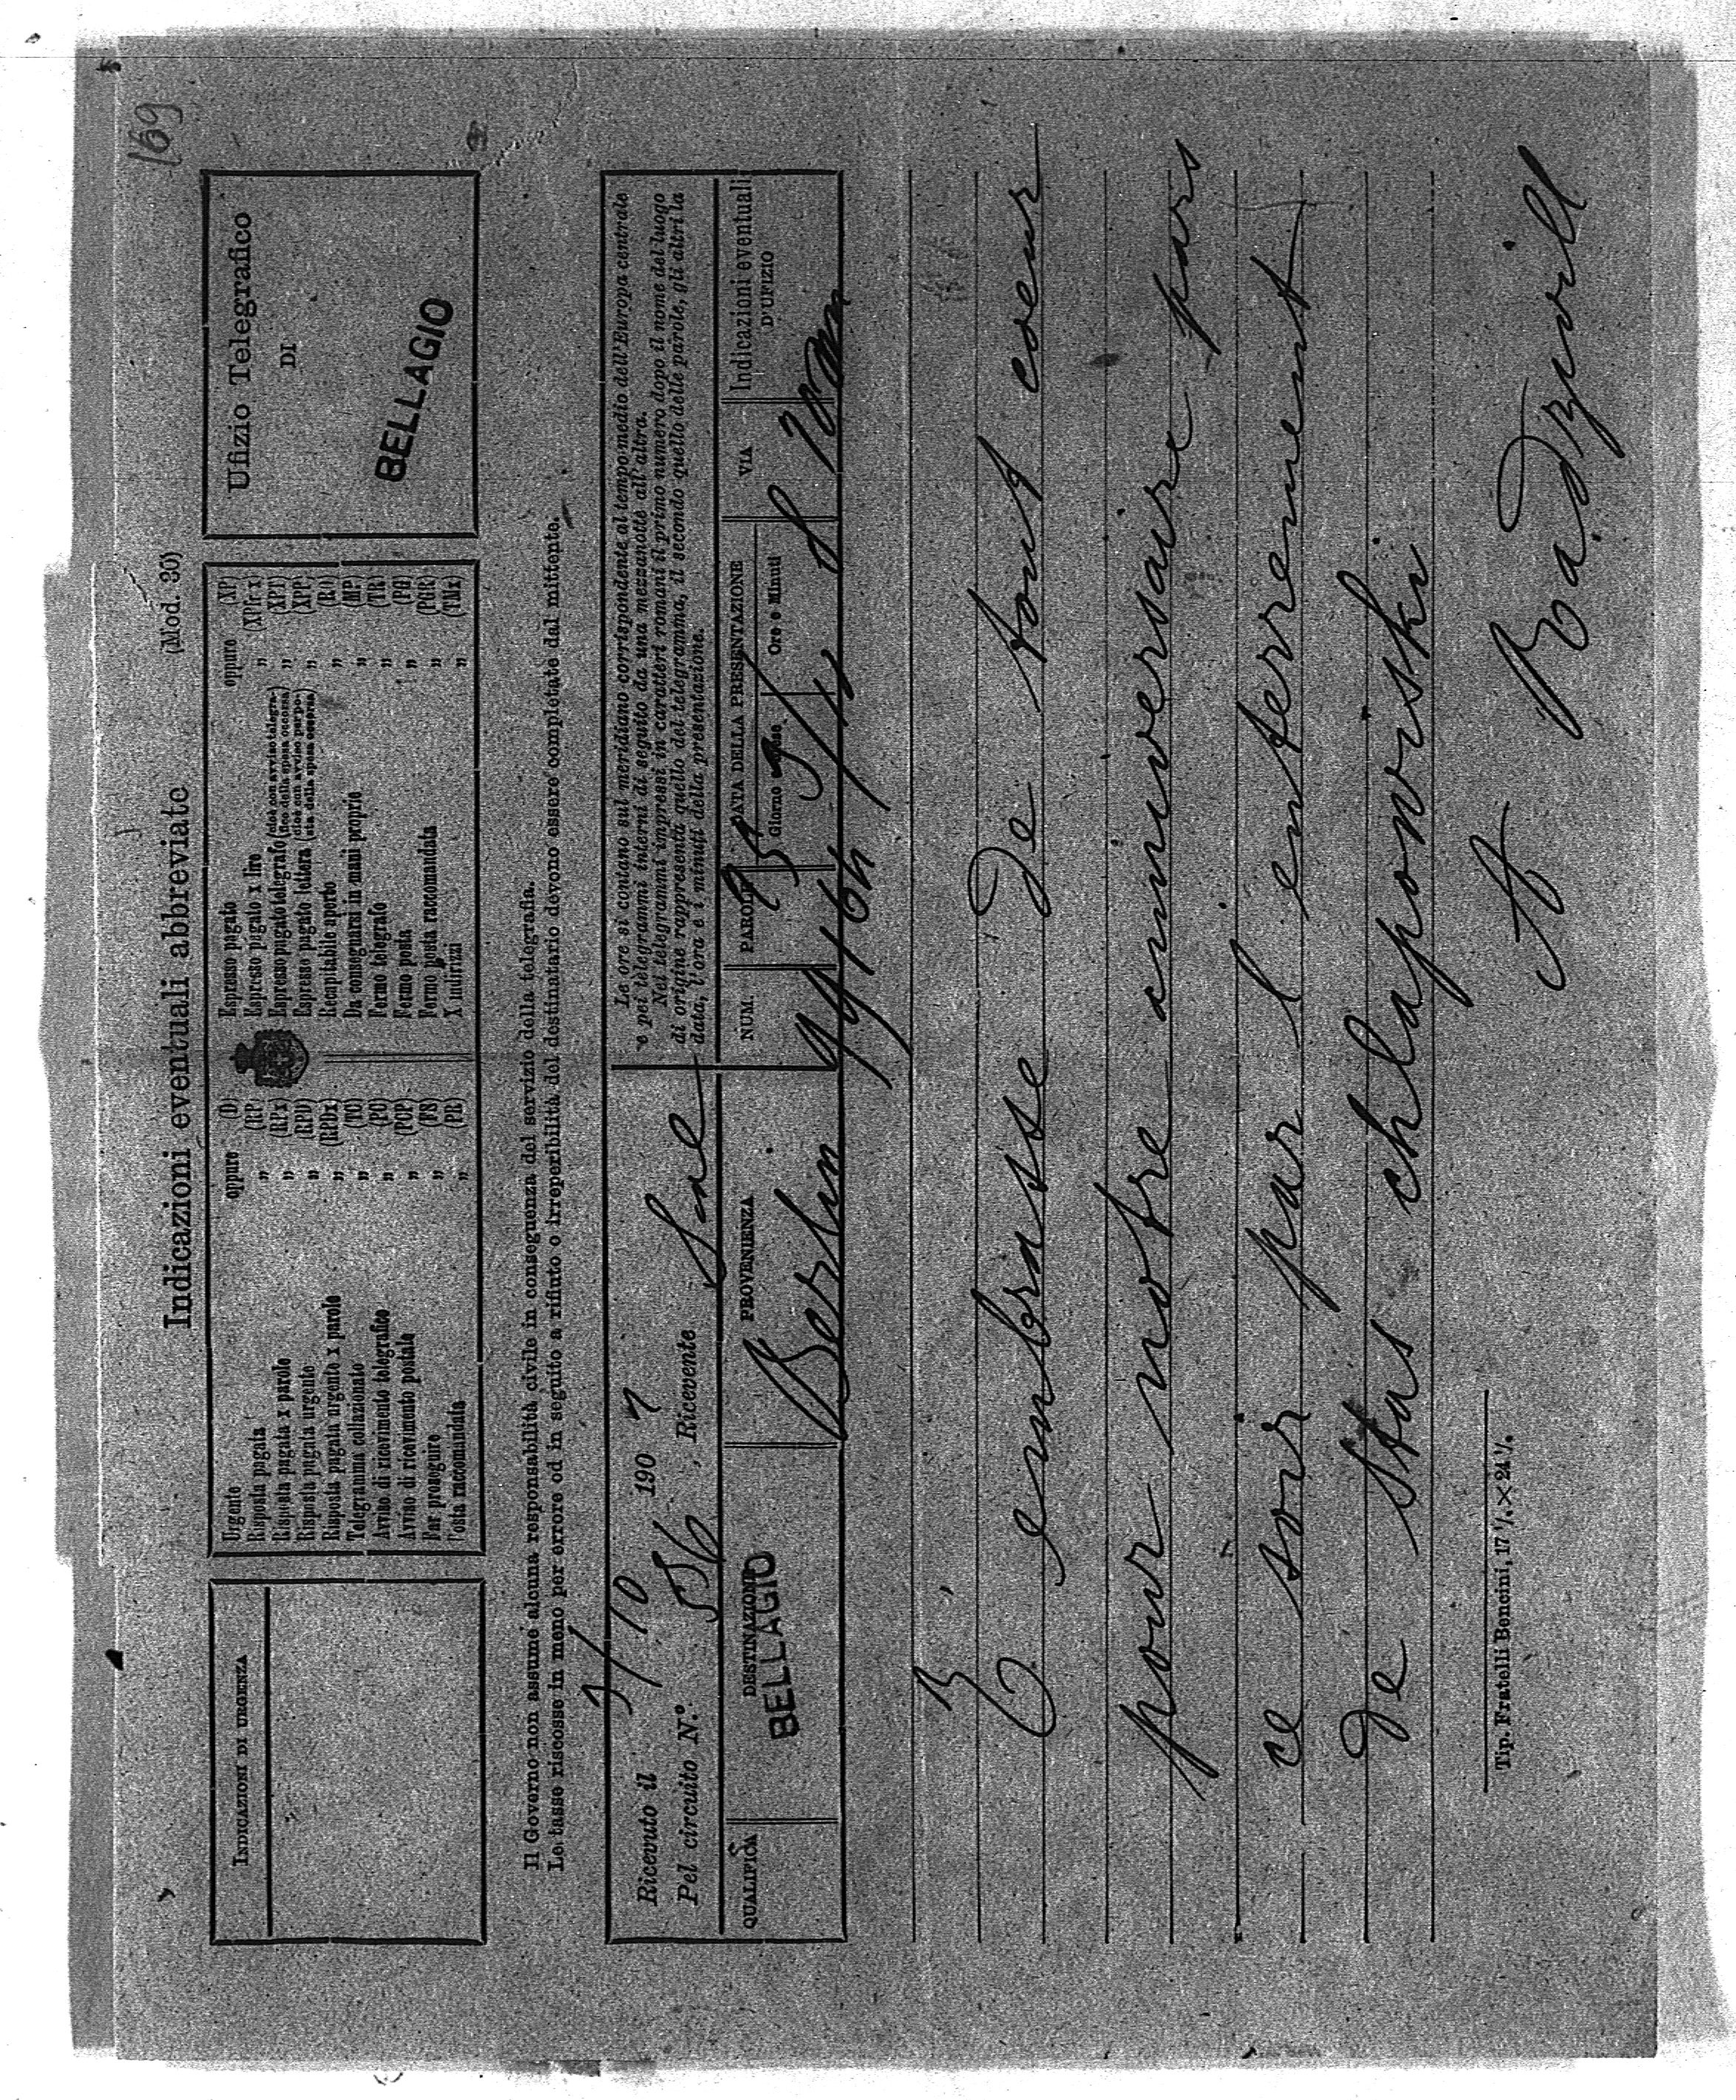 169
Indicazioni eventuali abbreviate (Mod. 30)
INDICAZIONI DI URGENZA
Urgente oppure (D)
Risposta pagata „ (RP)
Risposta pagata x parole „ (RPx)
Risposta pagata urgente „ (RPD)
Risposta pagata urgente x parole „ (RPDx)
Telegramma collazionato „ (TC)
Avviso di ricevimento telegrafico „ (PC)
Avviso di ricevimento postale „ (PCP)
Far proseguire „ (FS)
Posta raccomandata „ (PR)
Espresso pagato oppure (XP)
Espresso pagato x lire „ (XPfr x)
Espresso pagato telegrafo (cioè con avviso telegrafico della spesa occorsa) „ (XPT)
Espresso pagato lettera (cioè con avviso per posta della spesa occorsa) „ (XPP)
Recapitabile aperto „ (RO)
Da consegnarsi in mani proprie „ (MP)
Fermo telegrafo „ (TR)
Fermo posta „ (PG)
Fermo posta raccomandata „ (PGR)
X indirizzi „ (TMx)
Ufizio Telegrafico
DI
BELLAGIO
Il Governo non assume alcuna responsabilità civile in conseguenza del servizio della telegrafia.
Le tasse riscosse in meno per errore od in seguito a rifiuto o irreperibilità del destinatario devono essere completate dal mittente.
Ricevuto il 3/10 1907
Pel circuito N.° 556, Ricevente
Le ore si contano sul meridiano corrispondente al tempo medio dell'Europa centrale
e pei telegrammi interni di seguito da una mezzanotte all'altra.
Nei telegrammi impressi in caratteri romani il primo numero dopo il nome del luogo
di origine rappresenta quello del telegramma, il secondo quello delle parole, gli altri la
data, l'ora e i minuti della presentazione.
QUALIFICA DESTINAZIONE PROVENIENZA NUM. PAROLE DATA DELLA PRESENTAZIONE VIA Indicazioni eventuali
Giorno e mese Ore e Minuti D'UFIZIO
BELLAGIO Berlin
embrasse de tout coeur
pour notre anniversaire pars
ce soir par l enterrement
de Stas chlapowiski
A Radziwill
Tip. Fratelli Bencini, 17 ½ × 24 ½.